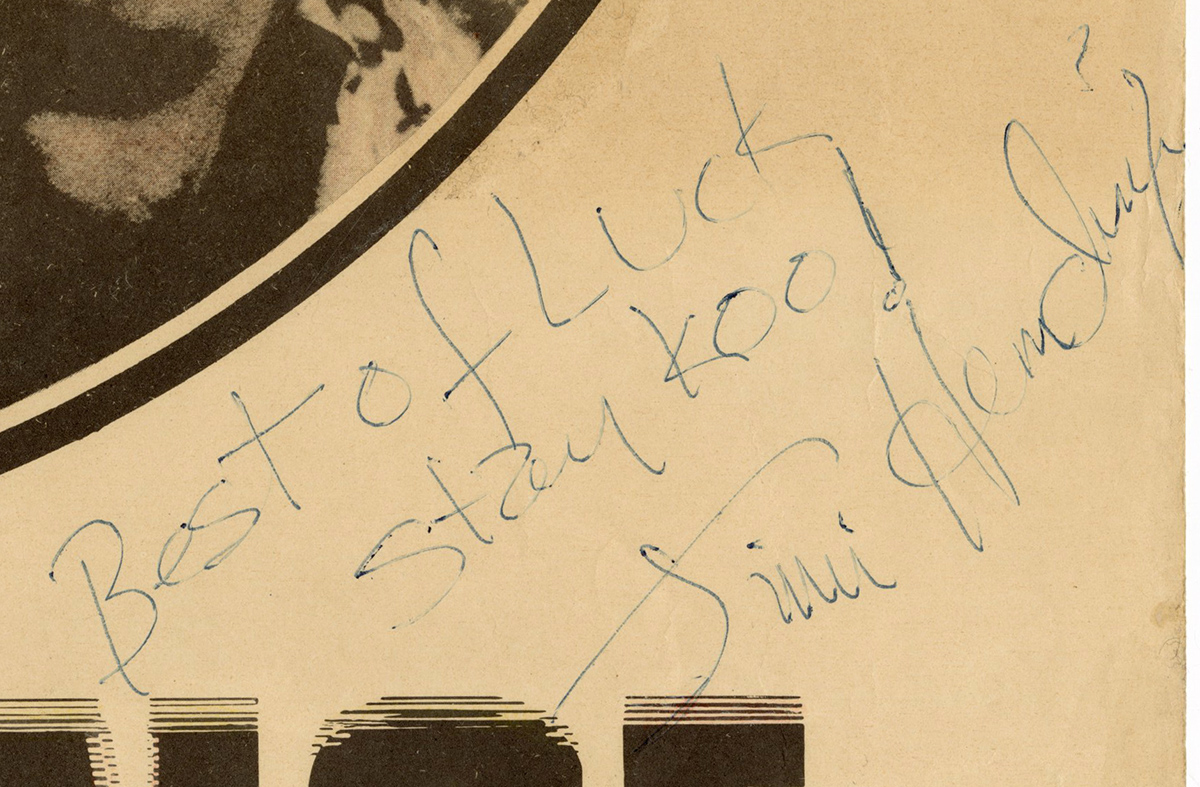 Best of Luck
Stay Kool
Jimi Hendrix